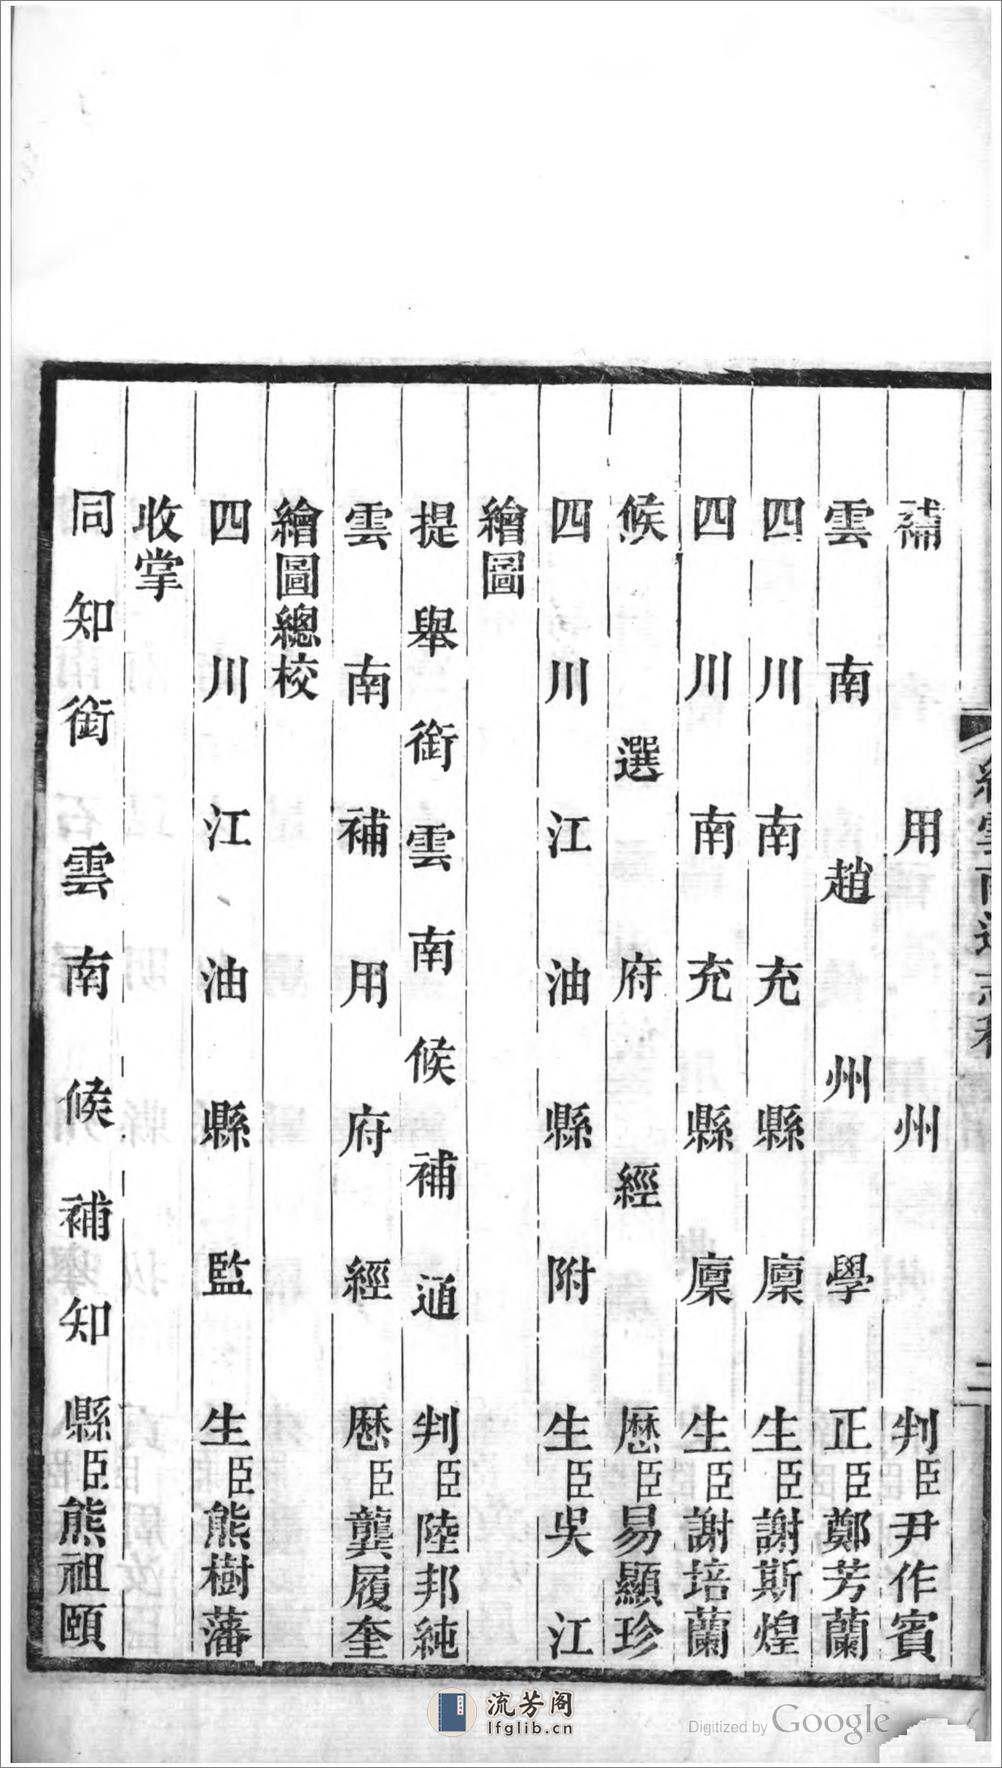 續雲南通志稿
二
補用州判臣尹作賓
雲南趙州學正臣鄭芳蘭
四川南充縣廩生臣謝斯煌
四川南充縣廩生臣謝培蘭
候選府經歷臣易顯珍
四川江油縣附生臣吳江
繪圖
提舉銜雲南候補通判臣陸邦純
雲南補用府經歷臣龔履奎
繪圖總校
四川江油縣監生臣熊樹藩
收掌
同知銜雲南候補知縣臣熊祖頤
流芳阁
lfglib.cn
Digitized by Google